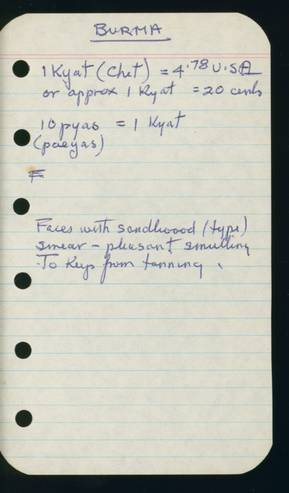 BURMA
1 Kyat (Chet) = 4.78 U.S.A
or approx 1 Kyat = 20 cents
10 pyas = 1 Kyat
(paeyas)
F
Faces with sandlwood (type)
smear - pleasant smulling
To keep from tanning.